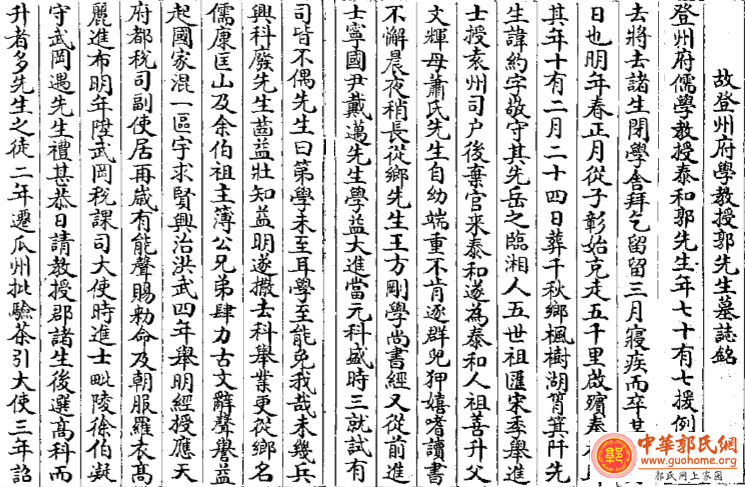 故登州府學教授郭先生墓誌銘
登州府儒學教授泰和郭先生年七十有七援例
去將去諸生閉學舍拜乞留留三月寢疾而卒其
日也明年春正月從子彰始克走五千里啟殯奉
其年十有二月二十四日葬千秋鄉楓樹湖筲箕阡先
生諱約字敬守其先岳之臨湘人五世祖匯宋季舉進
士授袁州司户後棄官来泰和遂為泰和人祖善升父
文輝母蕭氏先生自幼端重不肯逐群兒狎嬉嗜讀書
不懈晨夜稍長從鄉先生王方剛學尚書經又從前進
士寧國尹戴邁先生學益大進當元科盛時三就試有
司皆不偶先生曰第學未至耳學至能免我哉未幾兵
興科廢先生齒益壯知益明遂撤去科舉業更從鄉名
儒康匡山及余伯祖主簿公兄弟肆力古文辭聲譽益
起國家混一區宇求賢興治洪武四年舉明經授應天
府都税司副使居再歲有能聲賜勑命及朝服羅衣髙
麗進布明年陞武岡税課司大使時進士毗陵徐伯凝
守武岡遇先生禮甚恭日請教授郡諸生後選髙科而
升者多先生之徒二年遷瓜州批驗茶引大使三年詔
中華郭氏網
www.guohome.org
郭氏网上家園